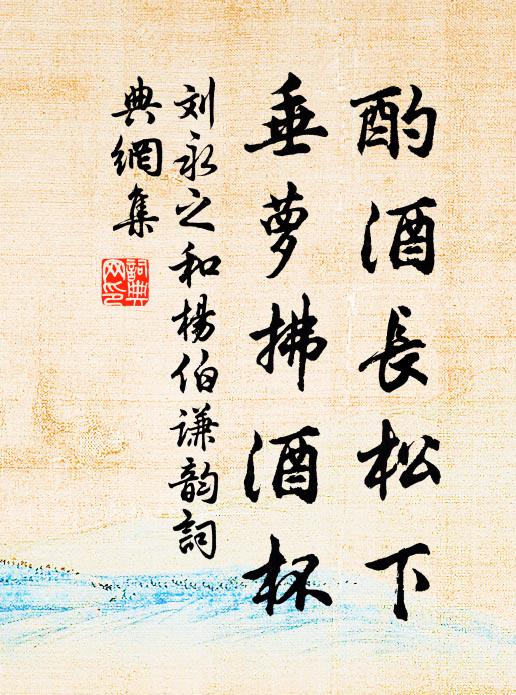 酌酒长松下
垂萝拂酒杯
刘永之和杨伯谦韵词
典網集
詞典
网印